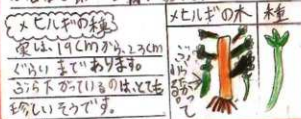 メヒルギの種
実は、19cmから、23cm
ぐらいまであります。
ぶら下がっているのは、とても
珍しいそうです。
メヒルギの木
種
ぶら下がって